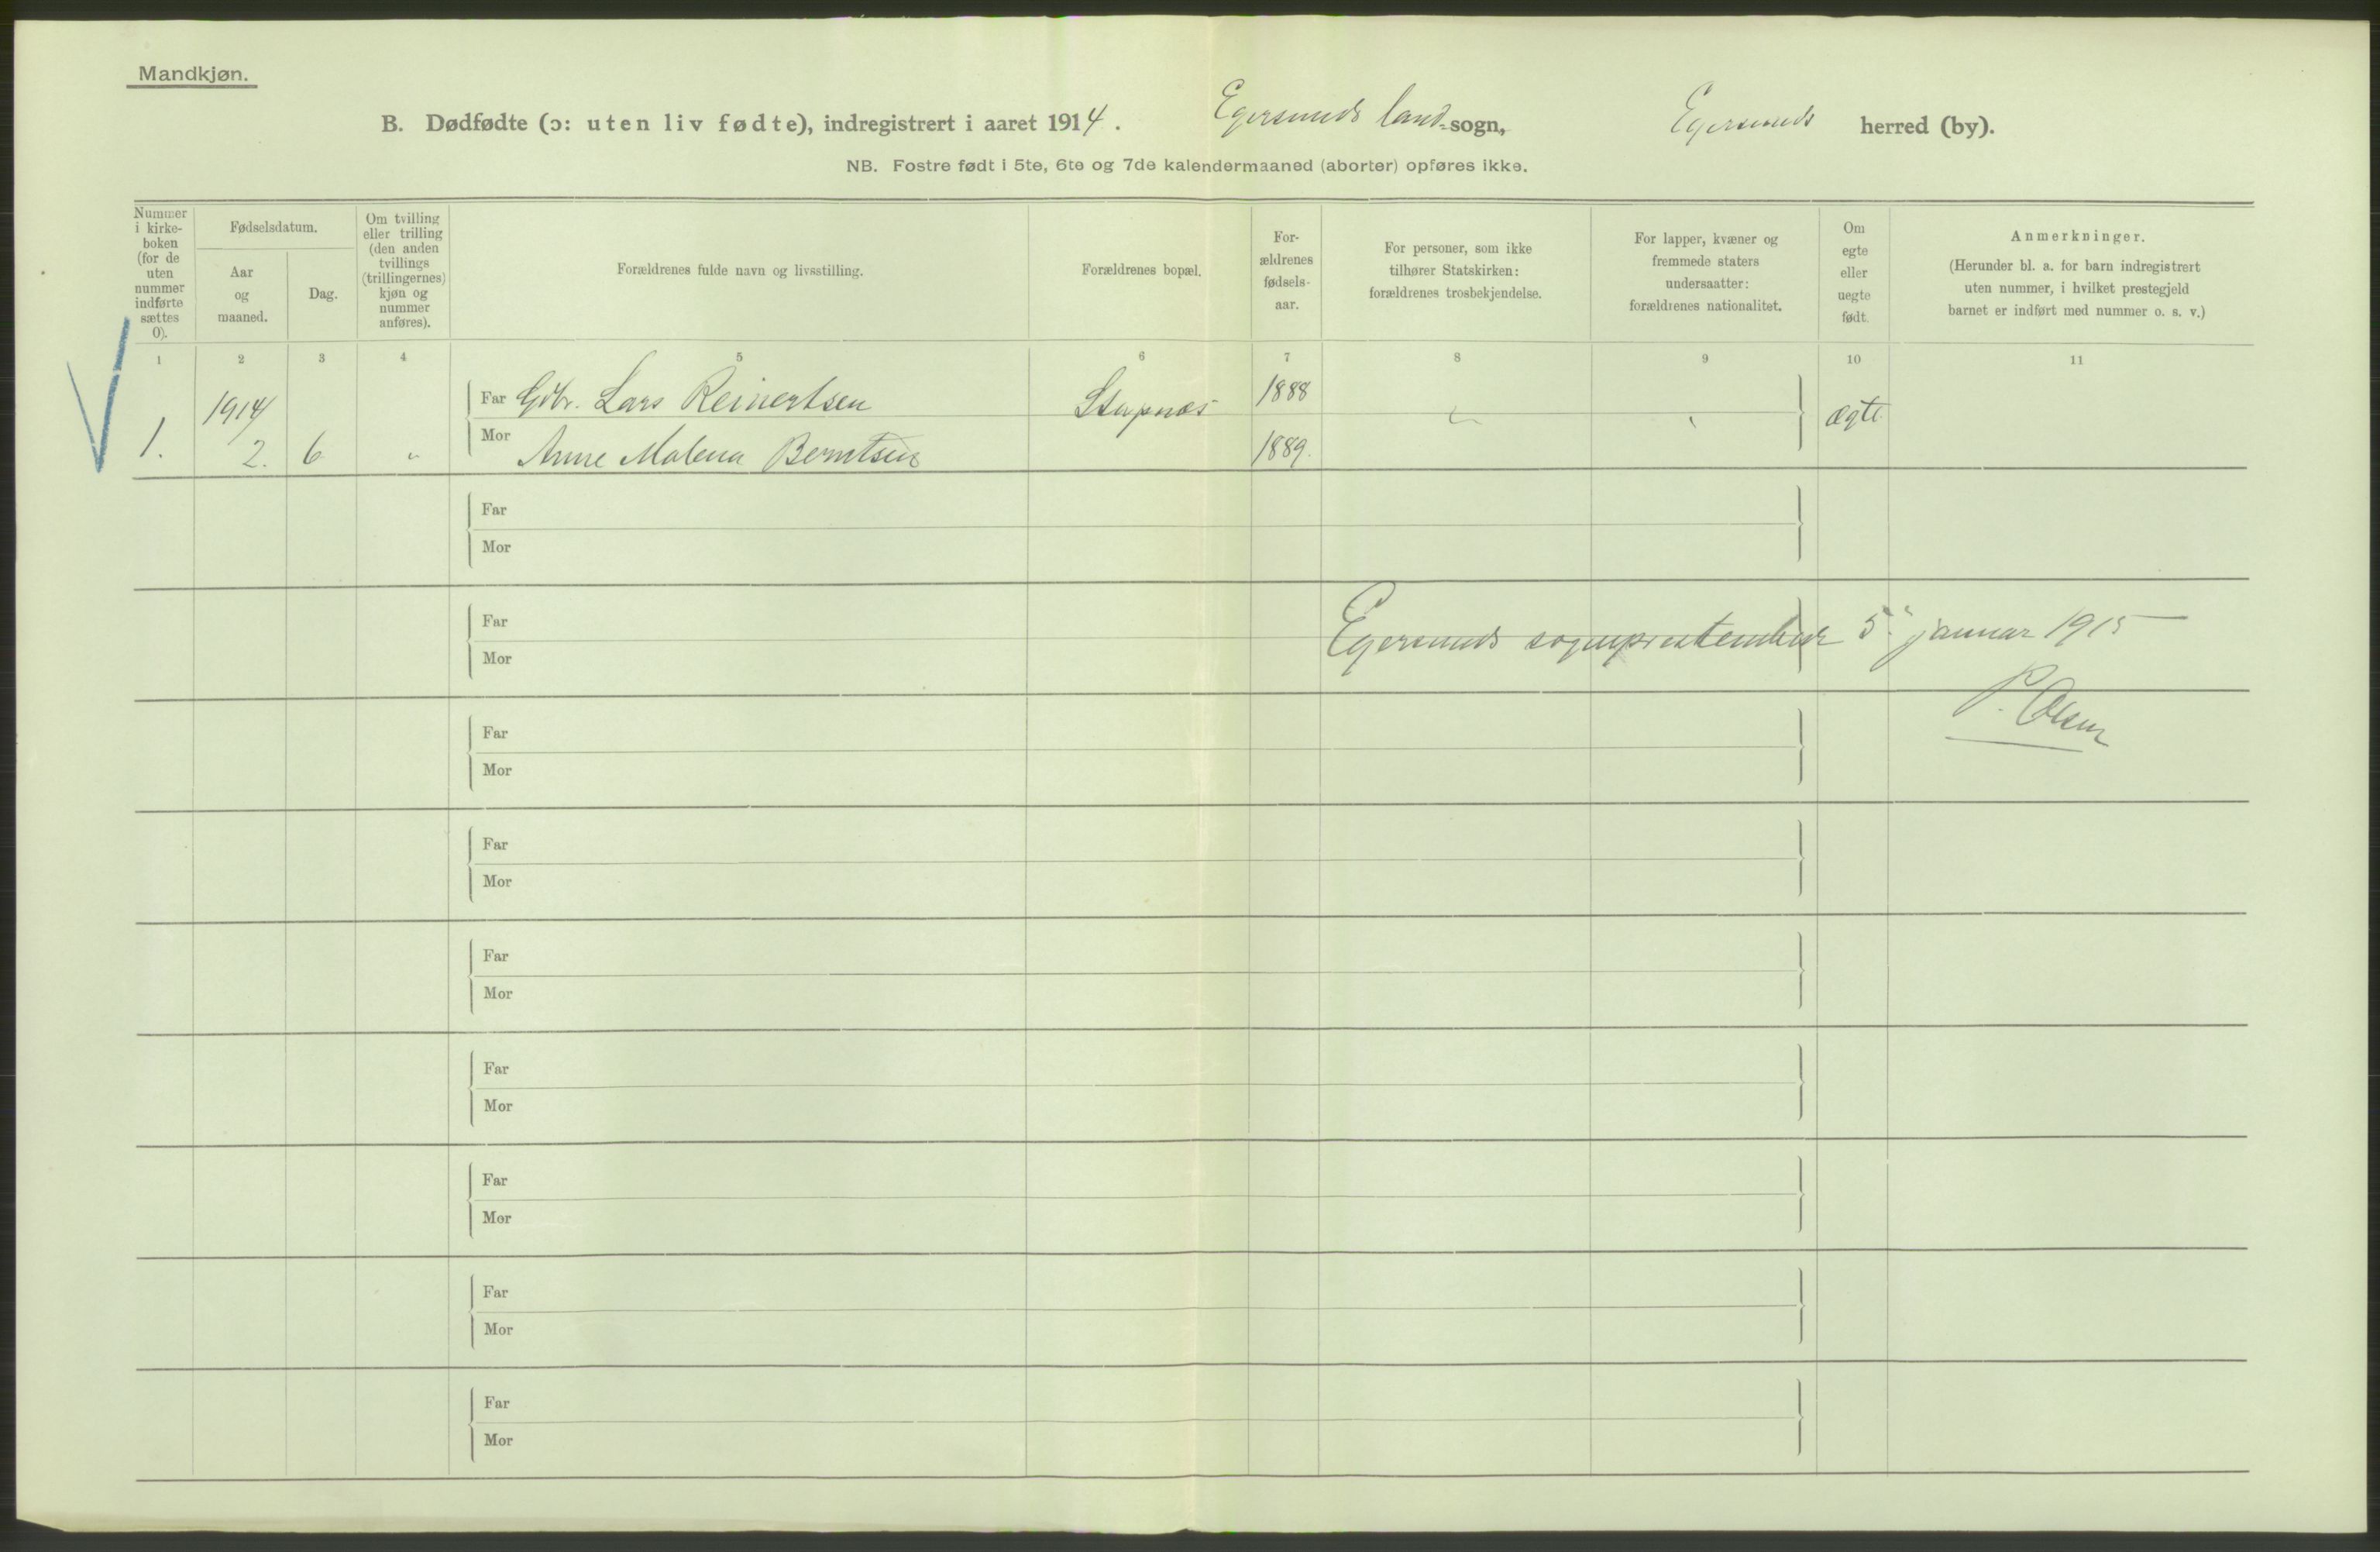 Mandkjøn.
B. Dødfødte (ɔ: uten liv fødte), indregistrert i aaret 1914. Egersunds land-sogn, Egersunds herred (by).
NB. Fostre født i 5te, 6te og 7de kalendermaaned (aborter) opføres ikke.
Nummer
i kirke-
boken
(for de
uten
nummer
indførte
sættes
0).
Fødselsdatum.
Aar
og
maaned.
Dag.
Om tvilling
eller trilling
(den anden
tvillings
(trillingernes)
kjøn og
nummer
anføres).
Forældrenes fulde navn og livsstilling.
Forældrenes bopæl.
For-
ældrenes
fødsels-
aar.
For personer, som ikke
tilhører Statskirken:
forældrenes trosbekjendelse.
For lapper, kvæner og
fremmede staters
undersaatter:
forældrenes nationalitet.
Om
egte
eller
uegte
født.
Anmerkninger.
(Herunder bl. a. for barn indregistrert
uten nummer, i hvilket prestegjeld
barnet er indført med nummer o. s. v.)
1 2 3 4 5 6 7 8 9 10 11
1914 Far Gdbr. Lars Reinertsen Stapnes 1888 ægte
1. 2. 6 " Mor Anne Malena Berntsen 1889.
Far
Mor
Far Egersunds sogneprestembede 5 januar 1915
Mor
P. Olsen
Far
Mor
Far
Mor
Far
Mor
Far
Mor
Far
Mor
Far
Mor
Far
Mor